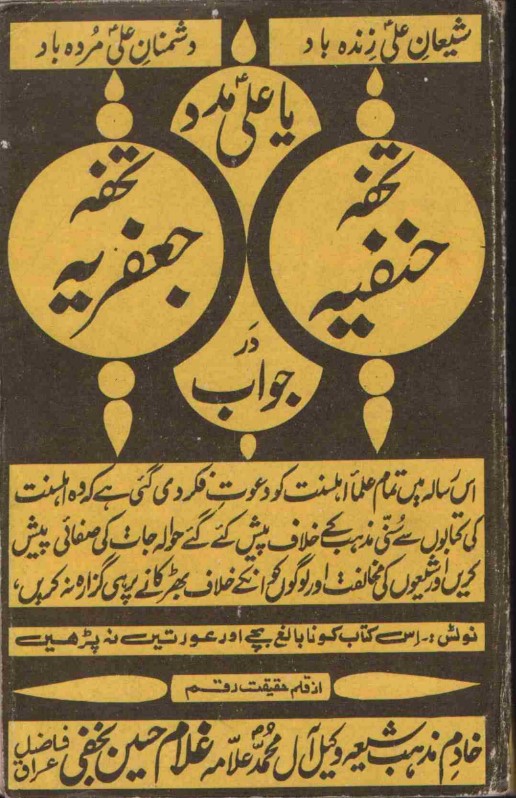 شیعانِ علیؑ زندہ باد
دشمنانِ علیؑ مُردہ باد
یا علیؑ مدد
تحفہ
حنفیہ
دَر
جواب
تحفہ
جعفریہ
اس رسالہ میں تمام علماً اہلسنت کو دعوتِ فکر دی گئی ہے کہ وہ اہلسنت
کی کتابوں سے سُنّی مذہب کے خلاف پیش کئے گئے حوالہ جات کی صفائی پیش
کریں اور شیعوں کی مخالفت اور لوگوں کو انکے خلاف بھڑکانے پر ہی گزارہ نہ کریں،
نوٹ:۔ اِس کتاب کو نابالغ بچے اور عورتیں نہ پڑھیں
از قلم حقیقت رقم
خادمِ مذہب شیعہ وکیل آلِ محمدؐ علّامہ غلام حسین نجفی فاضلِ عراق